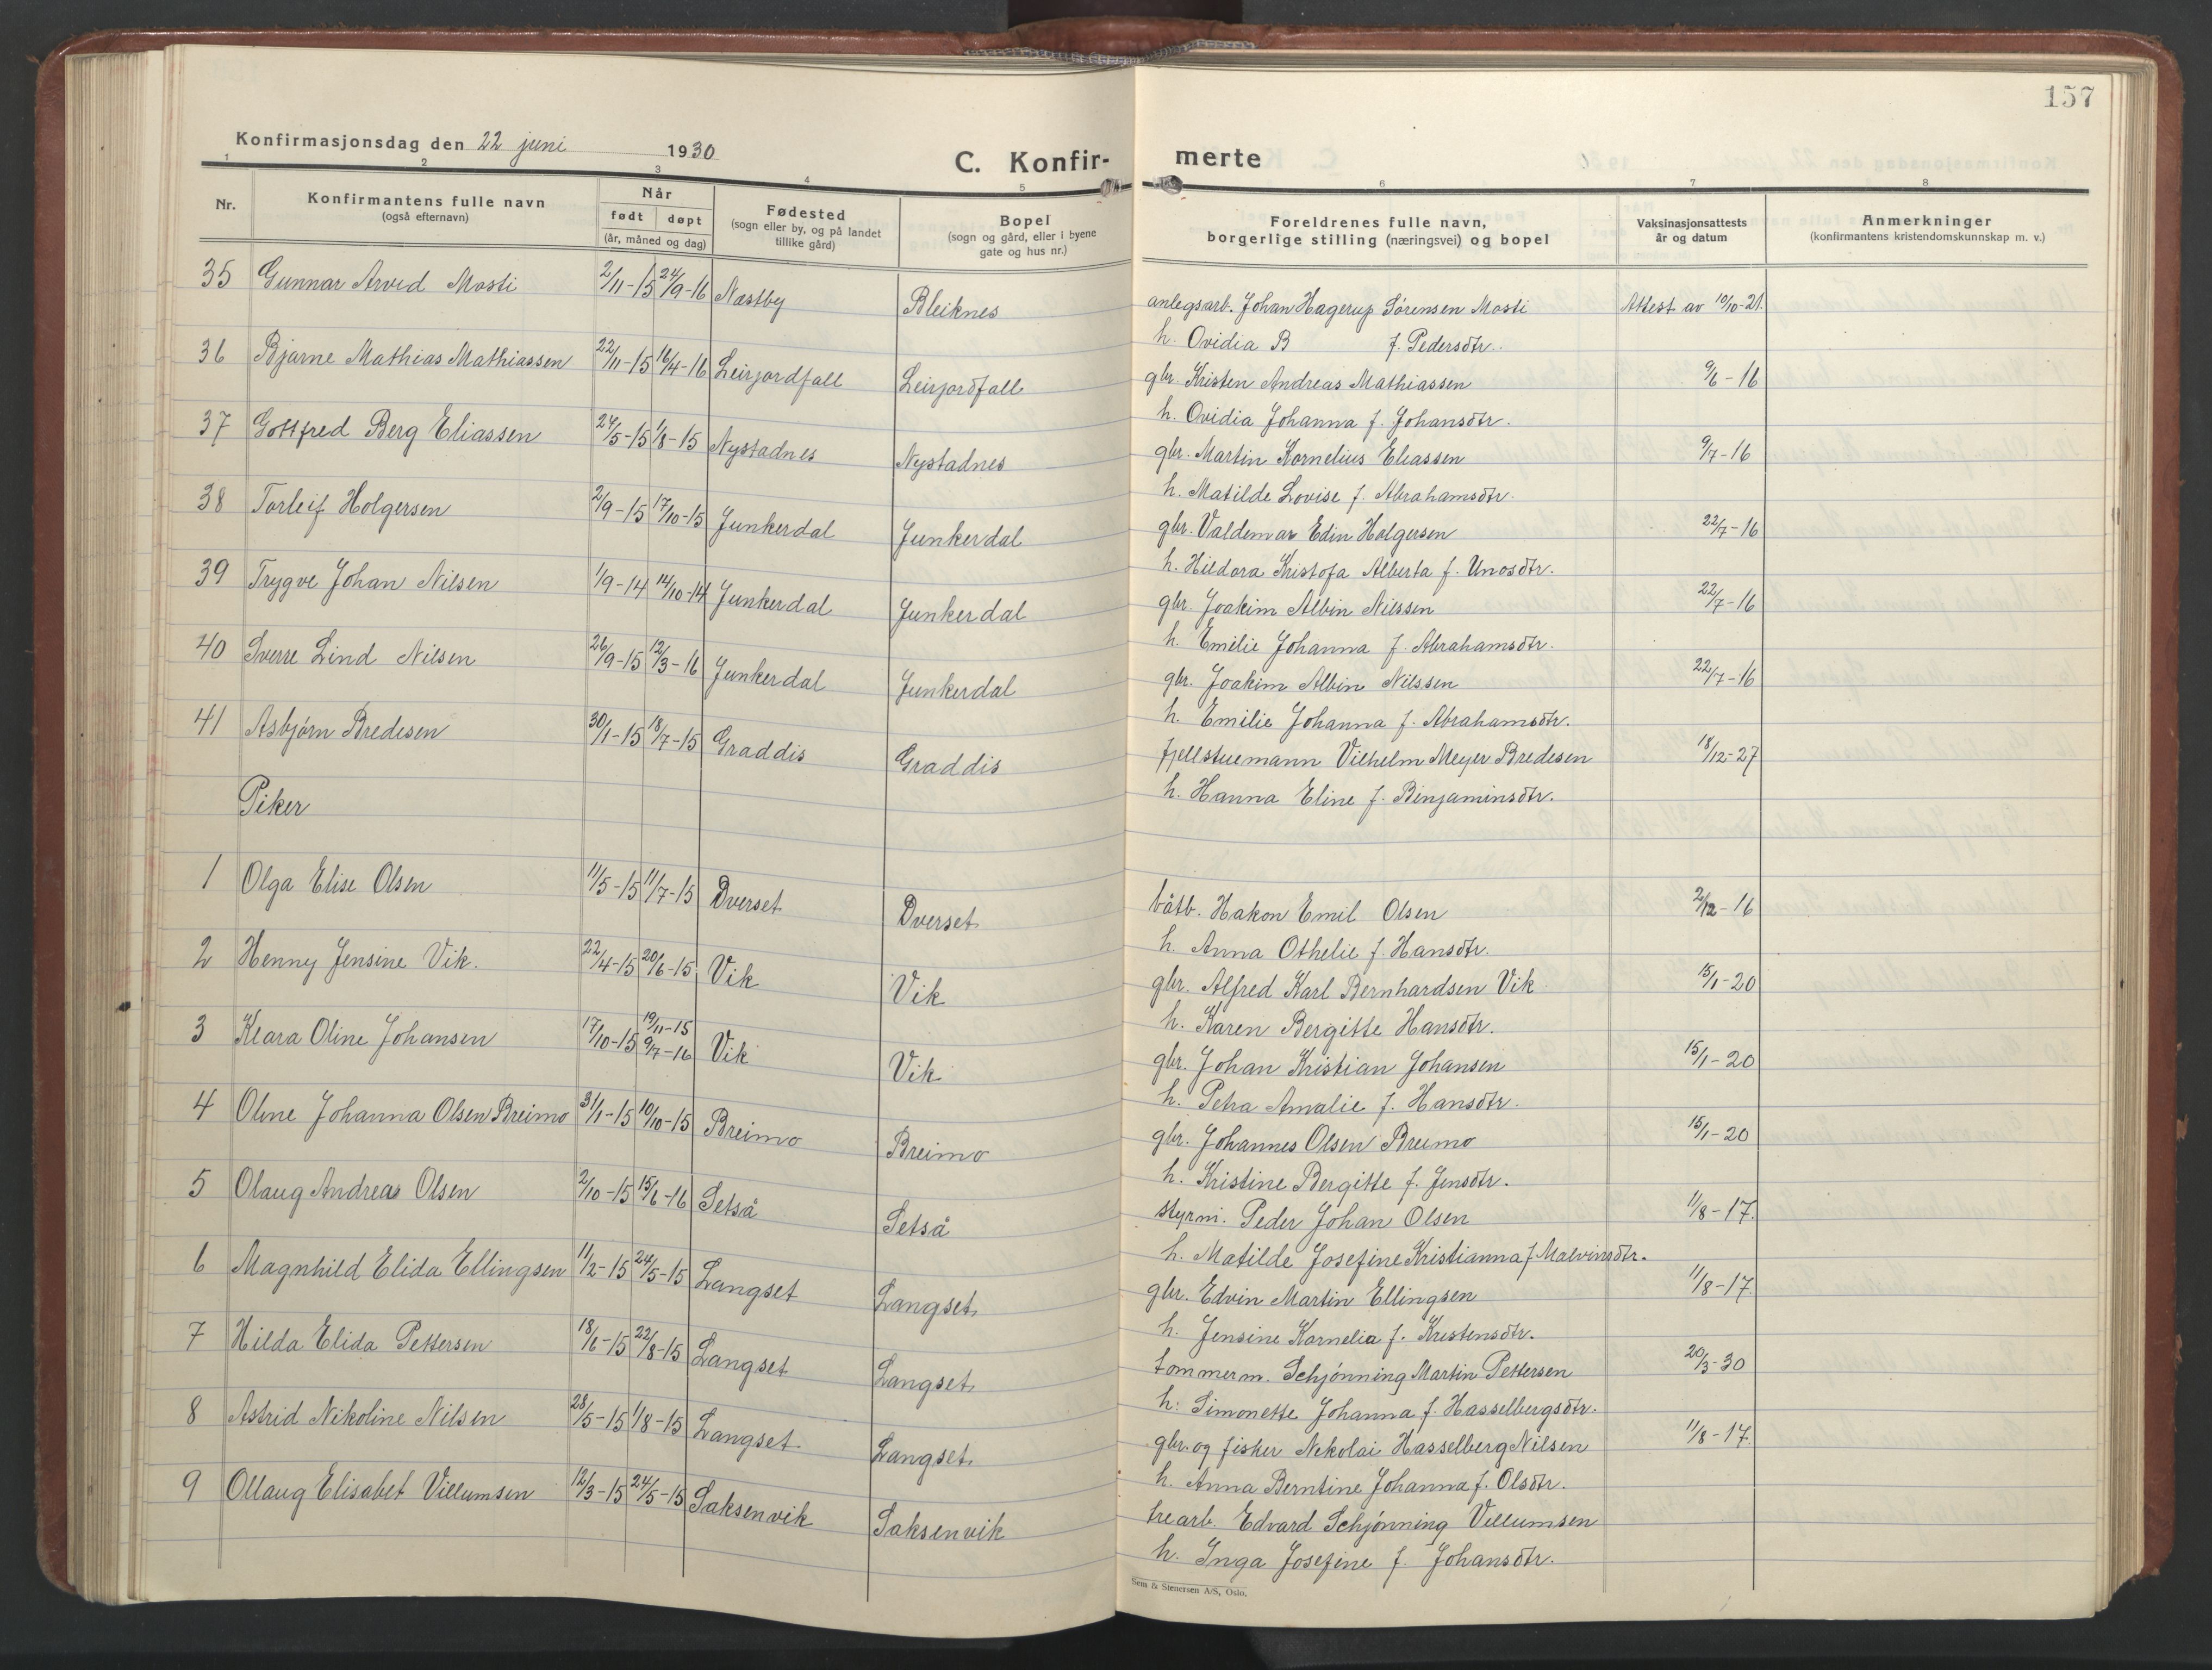 157
Konfirmasjonsdag den 22 juni 1930
C. Konfir- merte
1 2 3 4 5 6 7 8
Nr. Konfirmantens fulle navn (også efternavn) Når født døpt (år, måned og dag) Fødested (sogn eller by, og på landet tillike gård) Bopel (sogn og gård, eller i byene gate og hus nr.) Foreldrenes fulle navn, borgerlige stilling (næringsvei) og bopel Vaksinasjonsattests år og datum Anmerkninger (konfirmantens kristendomskunnskap m. v.)
35 Gunnar Arvid Mosti 2/11-15 24/9-16 Næstby Bleiknes anlegsarb. Johan Hagerup Sørensen Mosti Attest av 10/10-21.
h. Ovidia B f. Pedersdtr.
36 Bjarne Mathias Mathiassen 22/11-15 16/4-16 Leirjordfall Leirjordfall gbr. Kristen Andreas Mathiassen 9/6-16
h. Ovidia Johanna f. Johansdtr.
37 Gottfred Berg Eliassen 24/5-15 1/8-15 Nystadnes Nystadnes gbr. Martin Kornelius Eliassen 9/7-16
h. Matilde Lovise f. Abrahamsdtr.
38 Torleif Holgersen 2/9-15 17/10-15 Junkerdal Junkerdal gbr. Valdemar Edin Holgersen 22/7-16
h. Hildora Kristofa Alberta f. Unosdtr.
39 Trygve Johan Nilsen 1/9-14 14/10-14 Junkerdal Junkerdal gbr. Joakim Albin Nilssen 22/7-16
h. Emilie Johanna f. Abrahamsdtr.
40 Sverre Lind Nilsen 26/9-15 12/3-16 Junkerdal Junkerdal gbr. Joakim Albin Nilssen 22/7-16
h. Emilie Johanna f. Abrahamsdtr.
41 Asbjørn Bredesen 30/1-15 18/7-15 Graddis Graddis fjellstuemann Vilhelm Meyer Bredesen 18/12-27
h. Hanna Eline f. Binjaminsdtr.
Piker
1 Olga Elise Olsen 11/5-15 11/7-15 Dverset Dverset båtb. Hakon Emil Olsen 2/12-16
h. Anna Othelie f. Hansdtr.
2 Henny Jensine Vik. 22/4-15 20/6-15 Vik Vik gbr. Alfred Karl Bernhardsen Vik 15/1-20
h. Karen Bergitte Hansdtr.
3 Klara Oline Johansen 17/10-15 19/11-15 9/7-16 Vik Vik gbr. Johan Kristian Johansen 15/1-20
h. Petra Amalie f. Hansdtr.
4 Oline Johanna Olsen Breimo 31/1-15 10/10-15 Breimo Breimo gbr. Johannes Olsen Breimo 15/1-20
h. Kristine Bergitte f. Jensdtr.
5 Olaug Andrea Olsen 2/10-15 15/6-16 Setså Setså styrm. Peder Johan Olsen 11/8-17.
h. Matilde Josefine Kristianna f. Malvinsdtr.
6 Magnhild Elida Ellingsen 11/2-15 24/5-15 Langset Langset gbr. Edvin Martin Ellingsen 11/8-17.
h. Jensine Kornelia f. Kristensdtr.
7 Hilda Elida Pettersen 18/6-15 22/8-15 Langset Langset tømmerm. Schjønning Martin Pettersen 20/3-30
h. Simonette Johanna f. Hasselbergsdtr.
8 Astrid Nikoline Nilsen 28/5-15 1/8-15 Langset Langset gbr. og fisker Nikolai Hasselberg Nilsen 11/8-17.
h. Anna Berntine Johanna f. Olsdtr.
9 Ollaug Elisabet Villumsen 12/3-15 24/5-15 Saksenvik Saksenvik trearb. Edvard Schjønning Villumsen
h. Inga Josefine f. Johansdtr.
Sem & Stenersen A/S, Oslo.